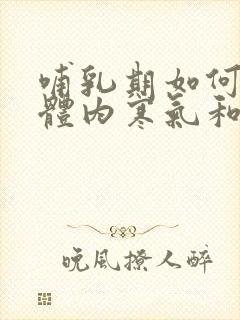 哺乳期如何
體内寒氣和
晚風撩人醉